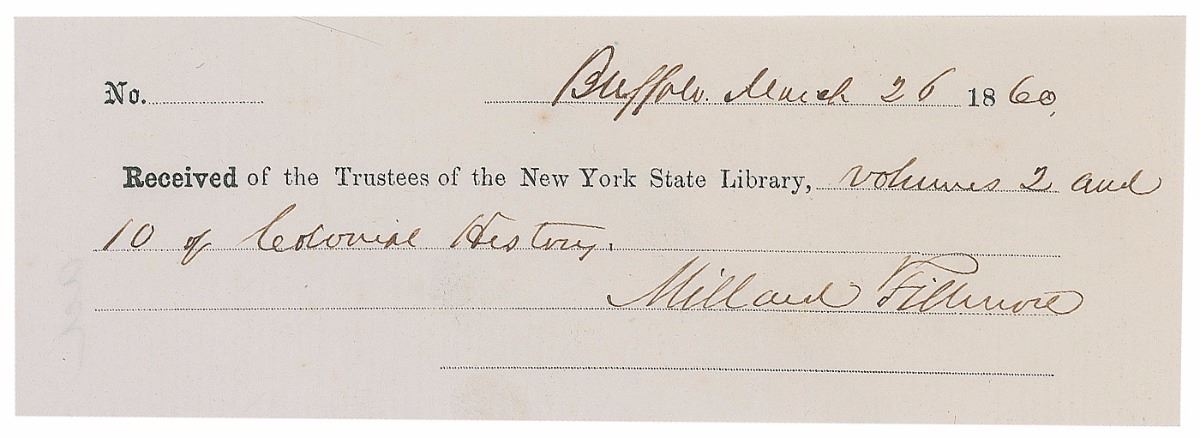 No. Buffalo. March 26 1860.
Received of the Trustees of the New York State Library, volumes 2 and
10 of Colonial History.
Millard Fillmore